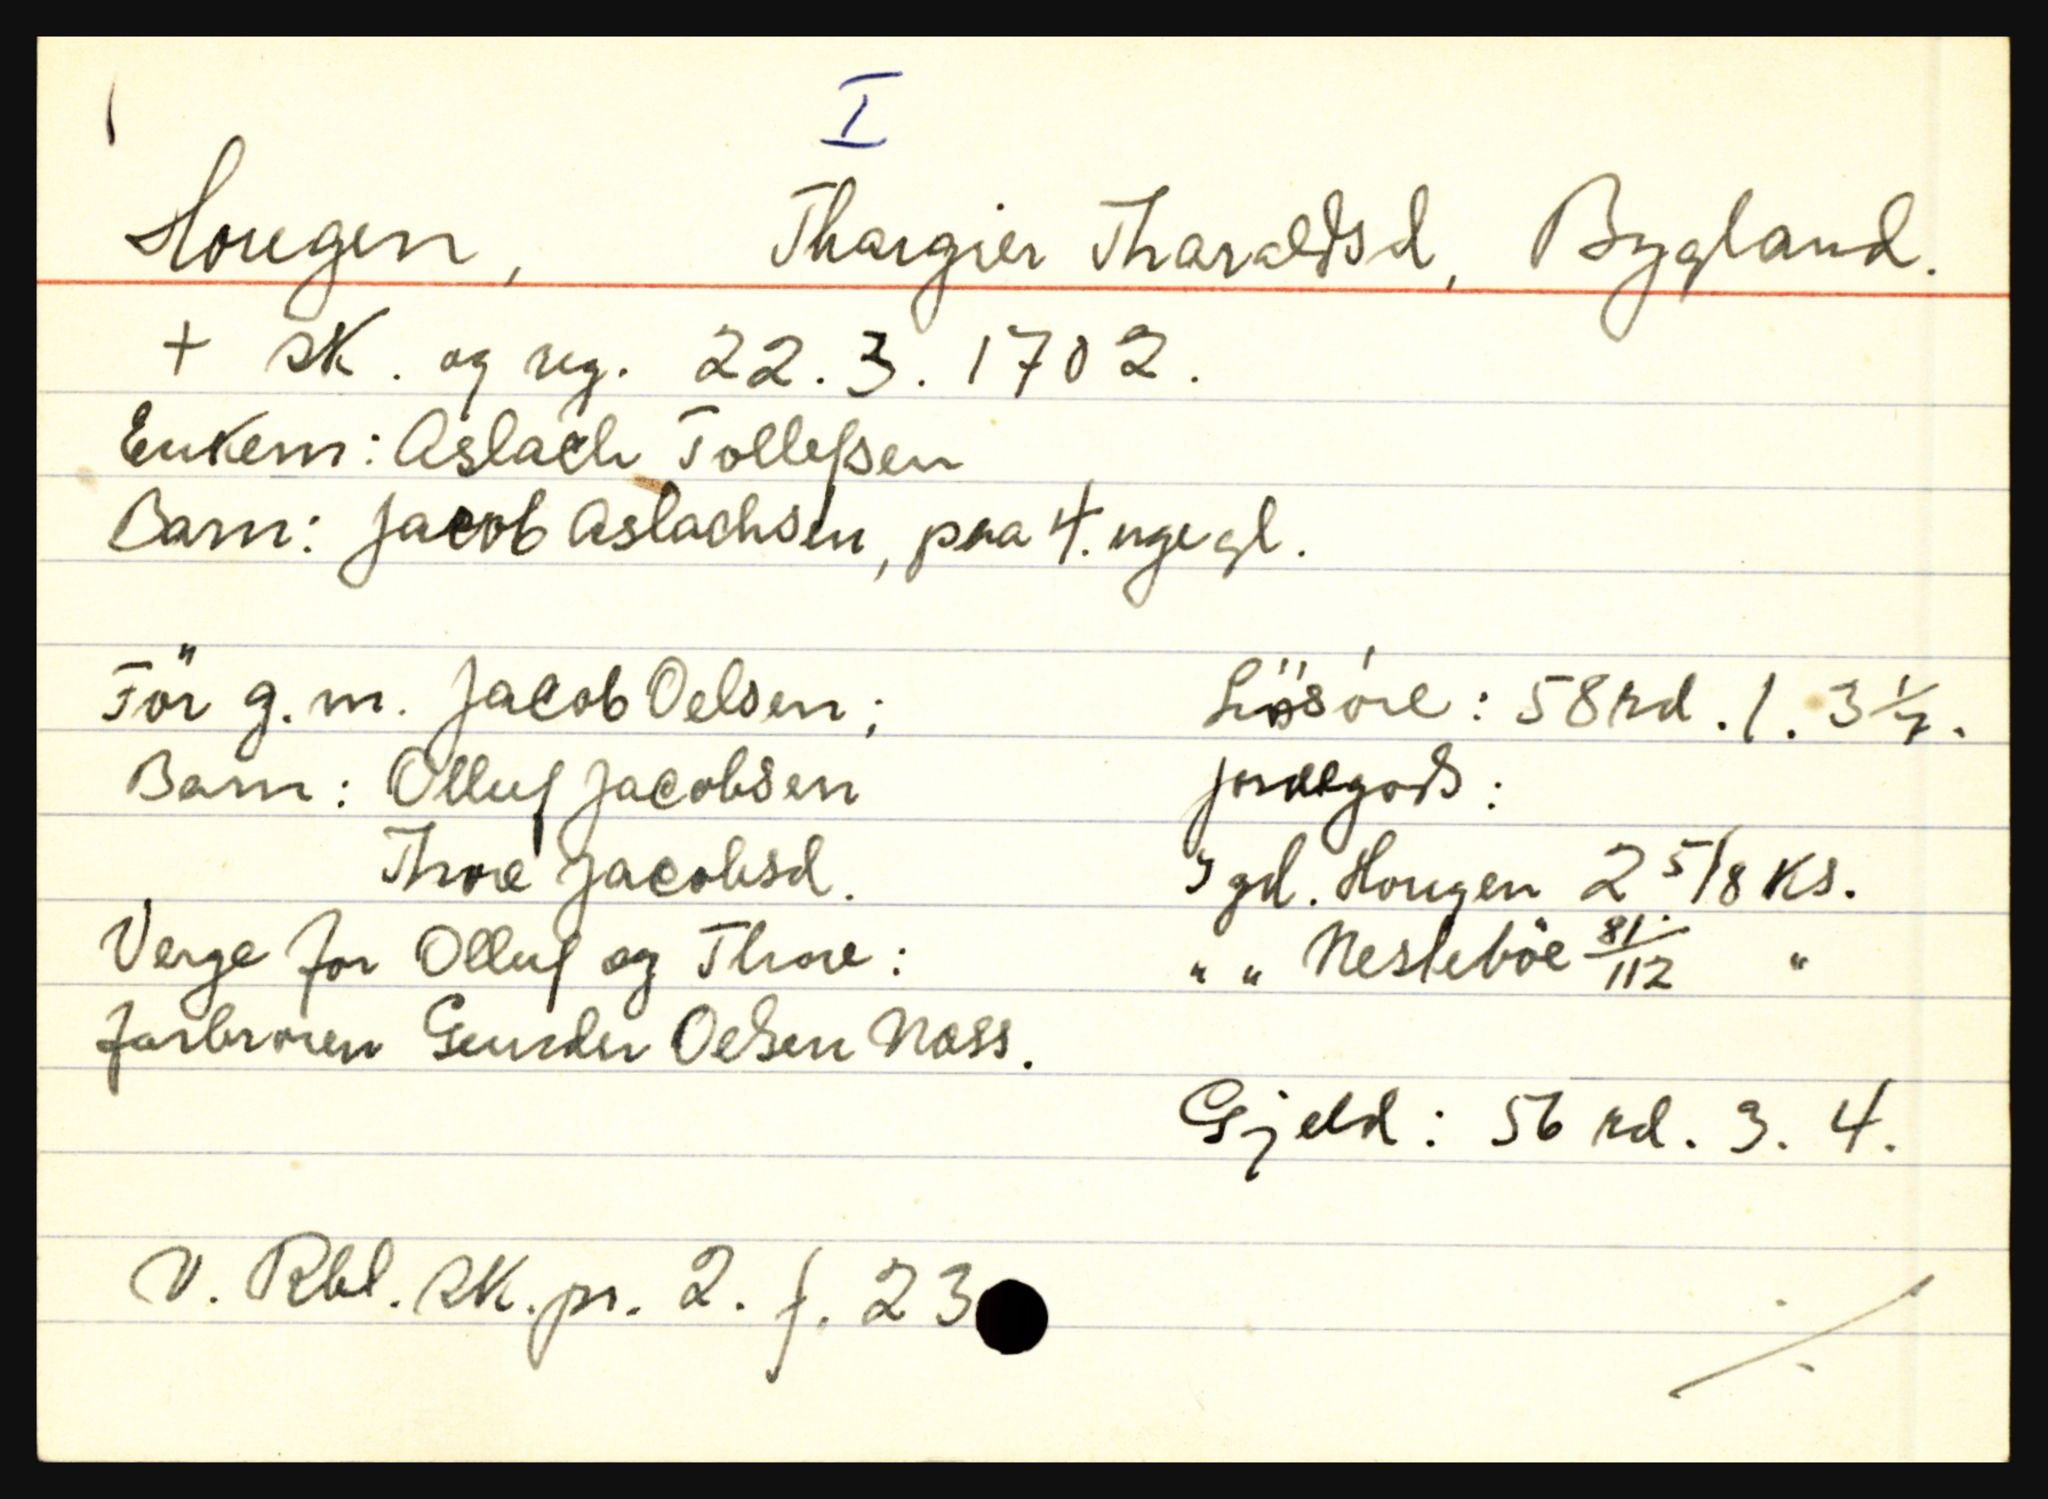 I
Hougen, Thargier Tharaldsd, Bygland.
+ sk. og reg. 22.3.1702.
Enkem: Aslach Tollefsen
Barn: Jacob Aslachsen, paa 4. uge gl.
För g.m. Jacob Oelsen;
Barn: Olluf Jacobsen
Thore Jacobsd.
Verge for Olluf og Thore:
farbroren Gunder Oelsen Noss.
Lösöre: 58 rd. 1. 3 1/7.
jordegods:
I gd. Hougen 2 5/8 ks.
" " Nesleböe 81/112 "
Gjeld: 56 rd. 3. 4.
V. Rbl. sk. pr. 2. f. 23